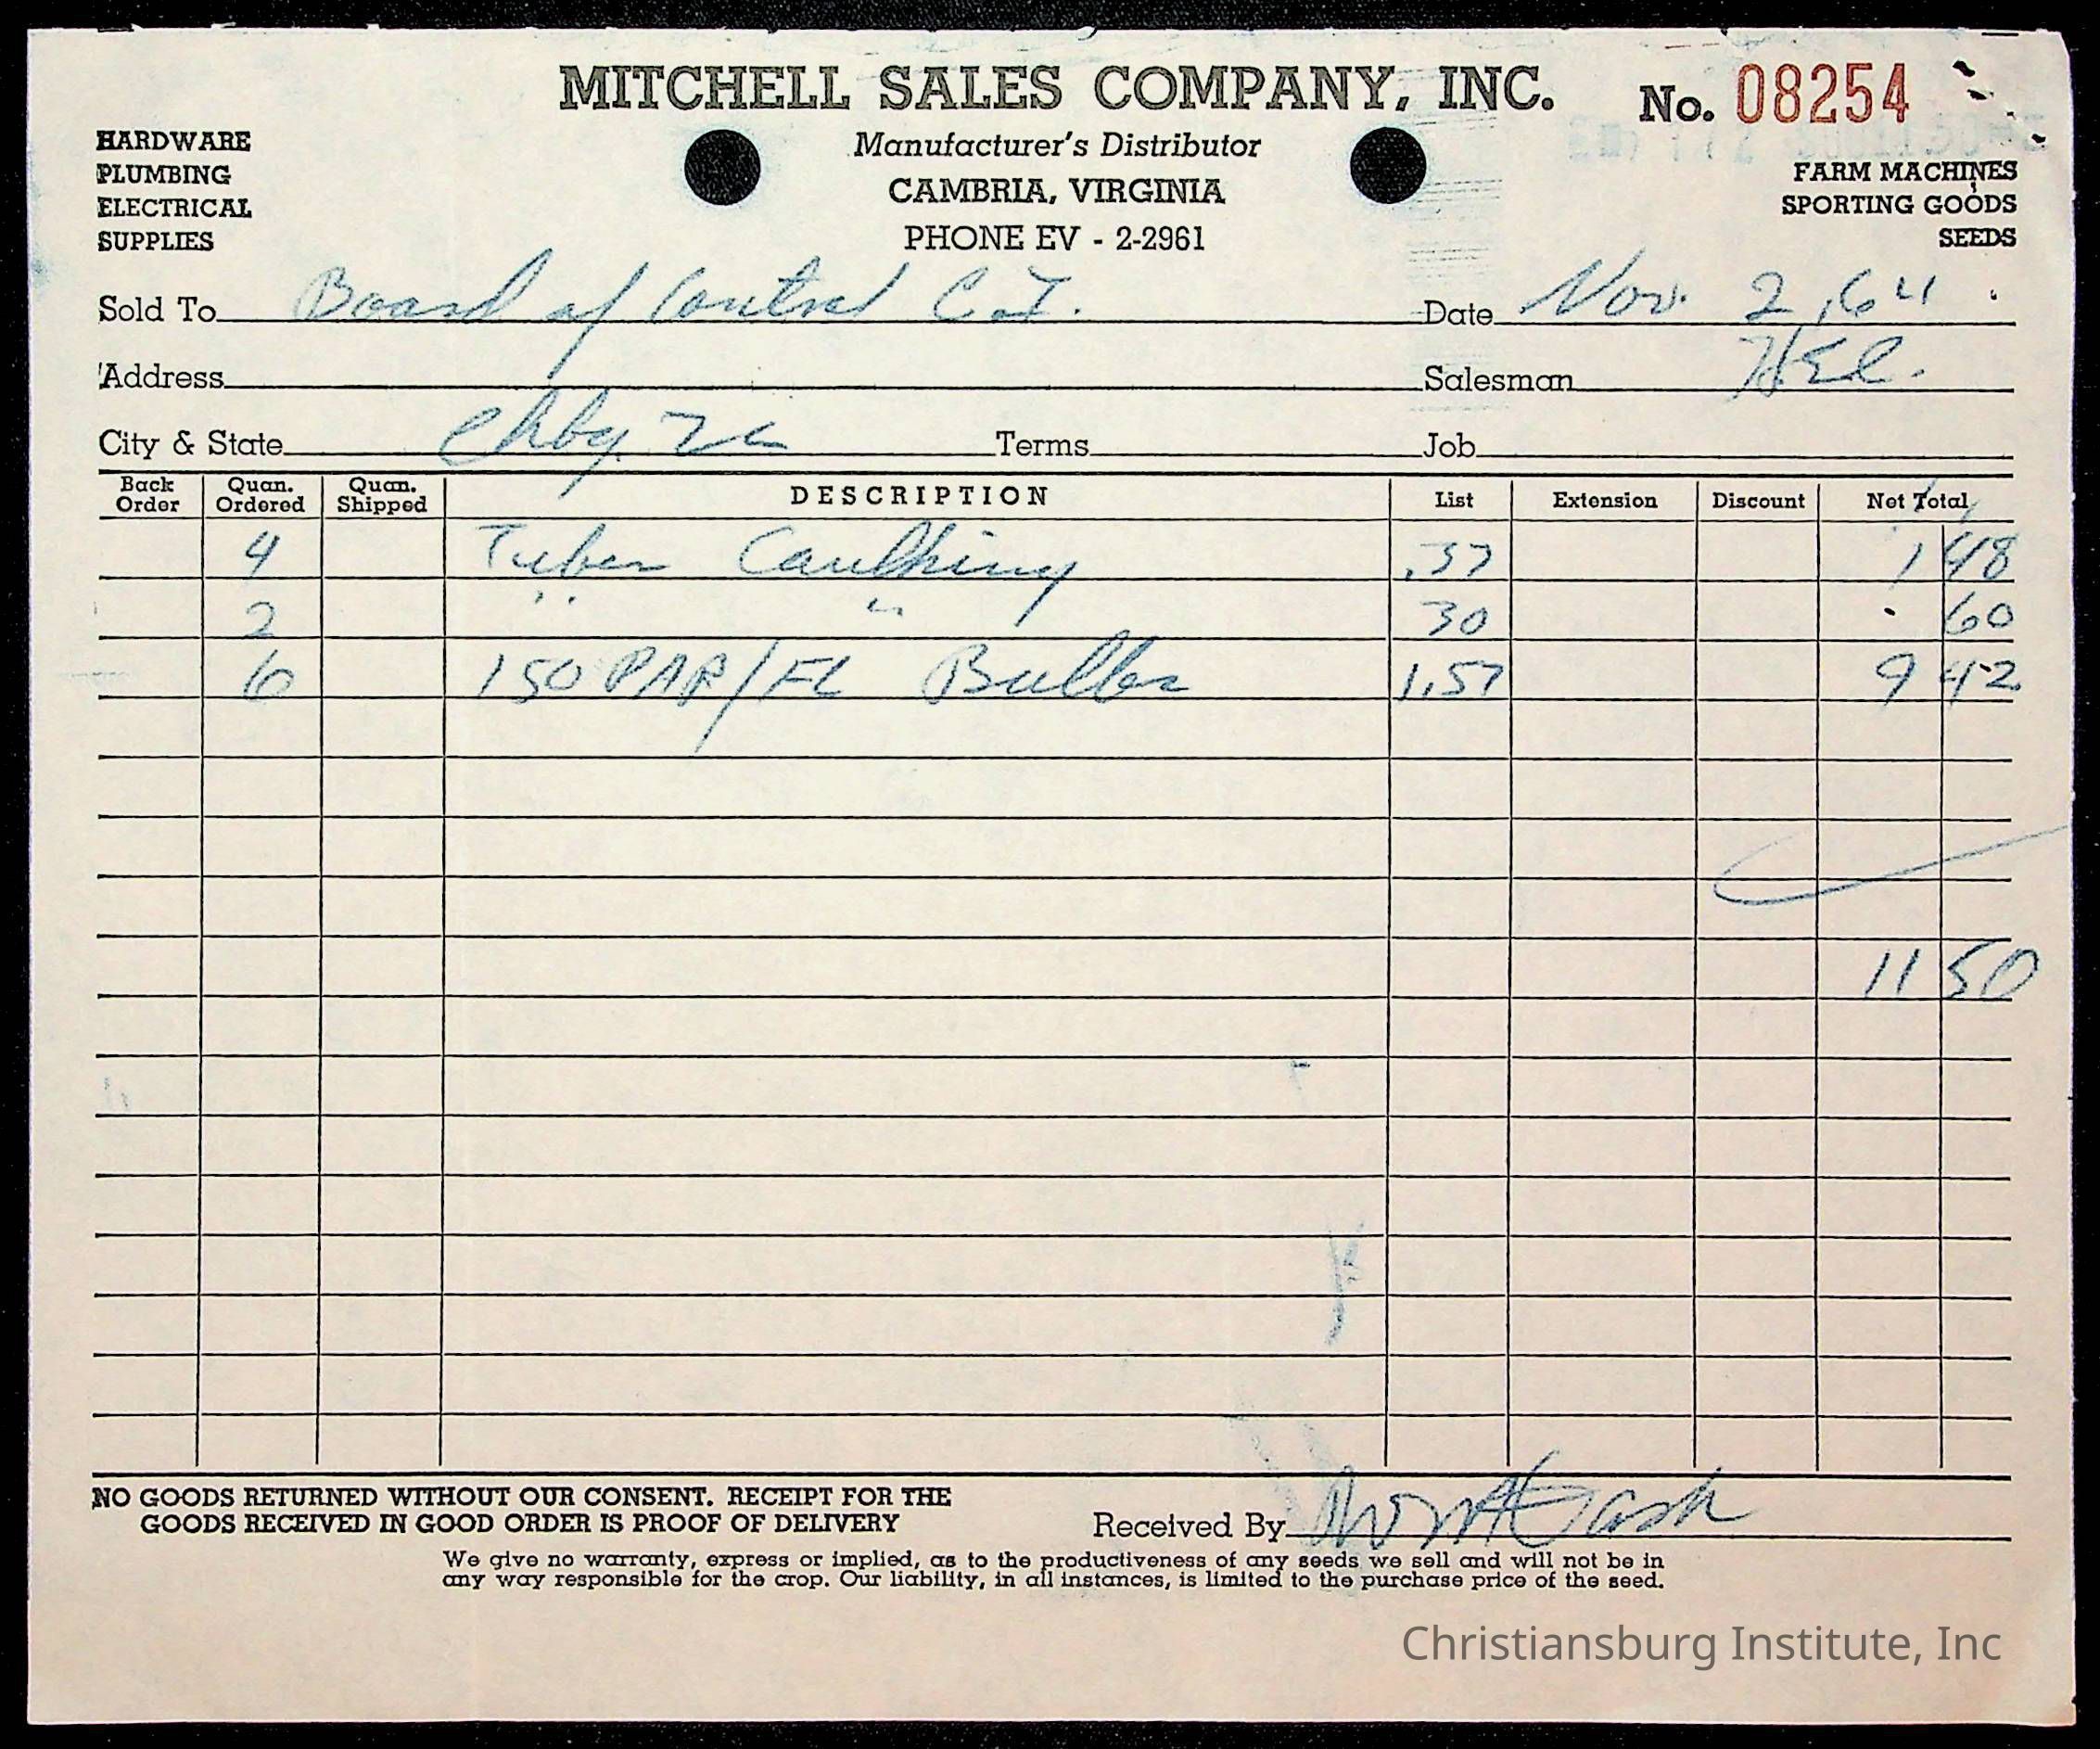 MITCHELL SALES COMPANY, INC.
No. 08254
HARDWARE
PLUMBING
ELECTRICAL
SUPPLIES
Manufacturer's Distributor
CAMBRIA, VIRGINIA
PHONE EV - 2-2961
FARM MACHINES
SPORTING GOODS
SEEDS
Sold To Board of Control C.I. Date Nov. 2, 64
Address Salesman
City & State Chbg. Va Terms Job
Back Order Quan. Ordered Quan. Shipped DESCRIPTION List Extension Discount Net Total
4 Tubes Caulking .37 1 48
2 " " 30 . 60
6 150 PAR/FL Bulbs 1.57 9 42
11 50
NO GOODS RETURNED WITHOUT OUR CONSENT. RECEIPT FOR THE
GOODS RECEIVED IN GOOD ORDER IS PROOF OF DELIVERY
Received By
We give no warranty, express or implied, as to the productiveness of any seeds we sell and will not be in
any way responsible for the crop. Our liability, in all instances, is limited to the purchase price of the seed.
Christiansburg Institute, Inc